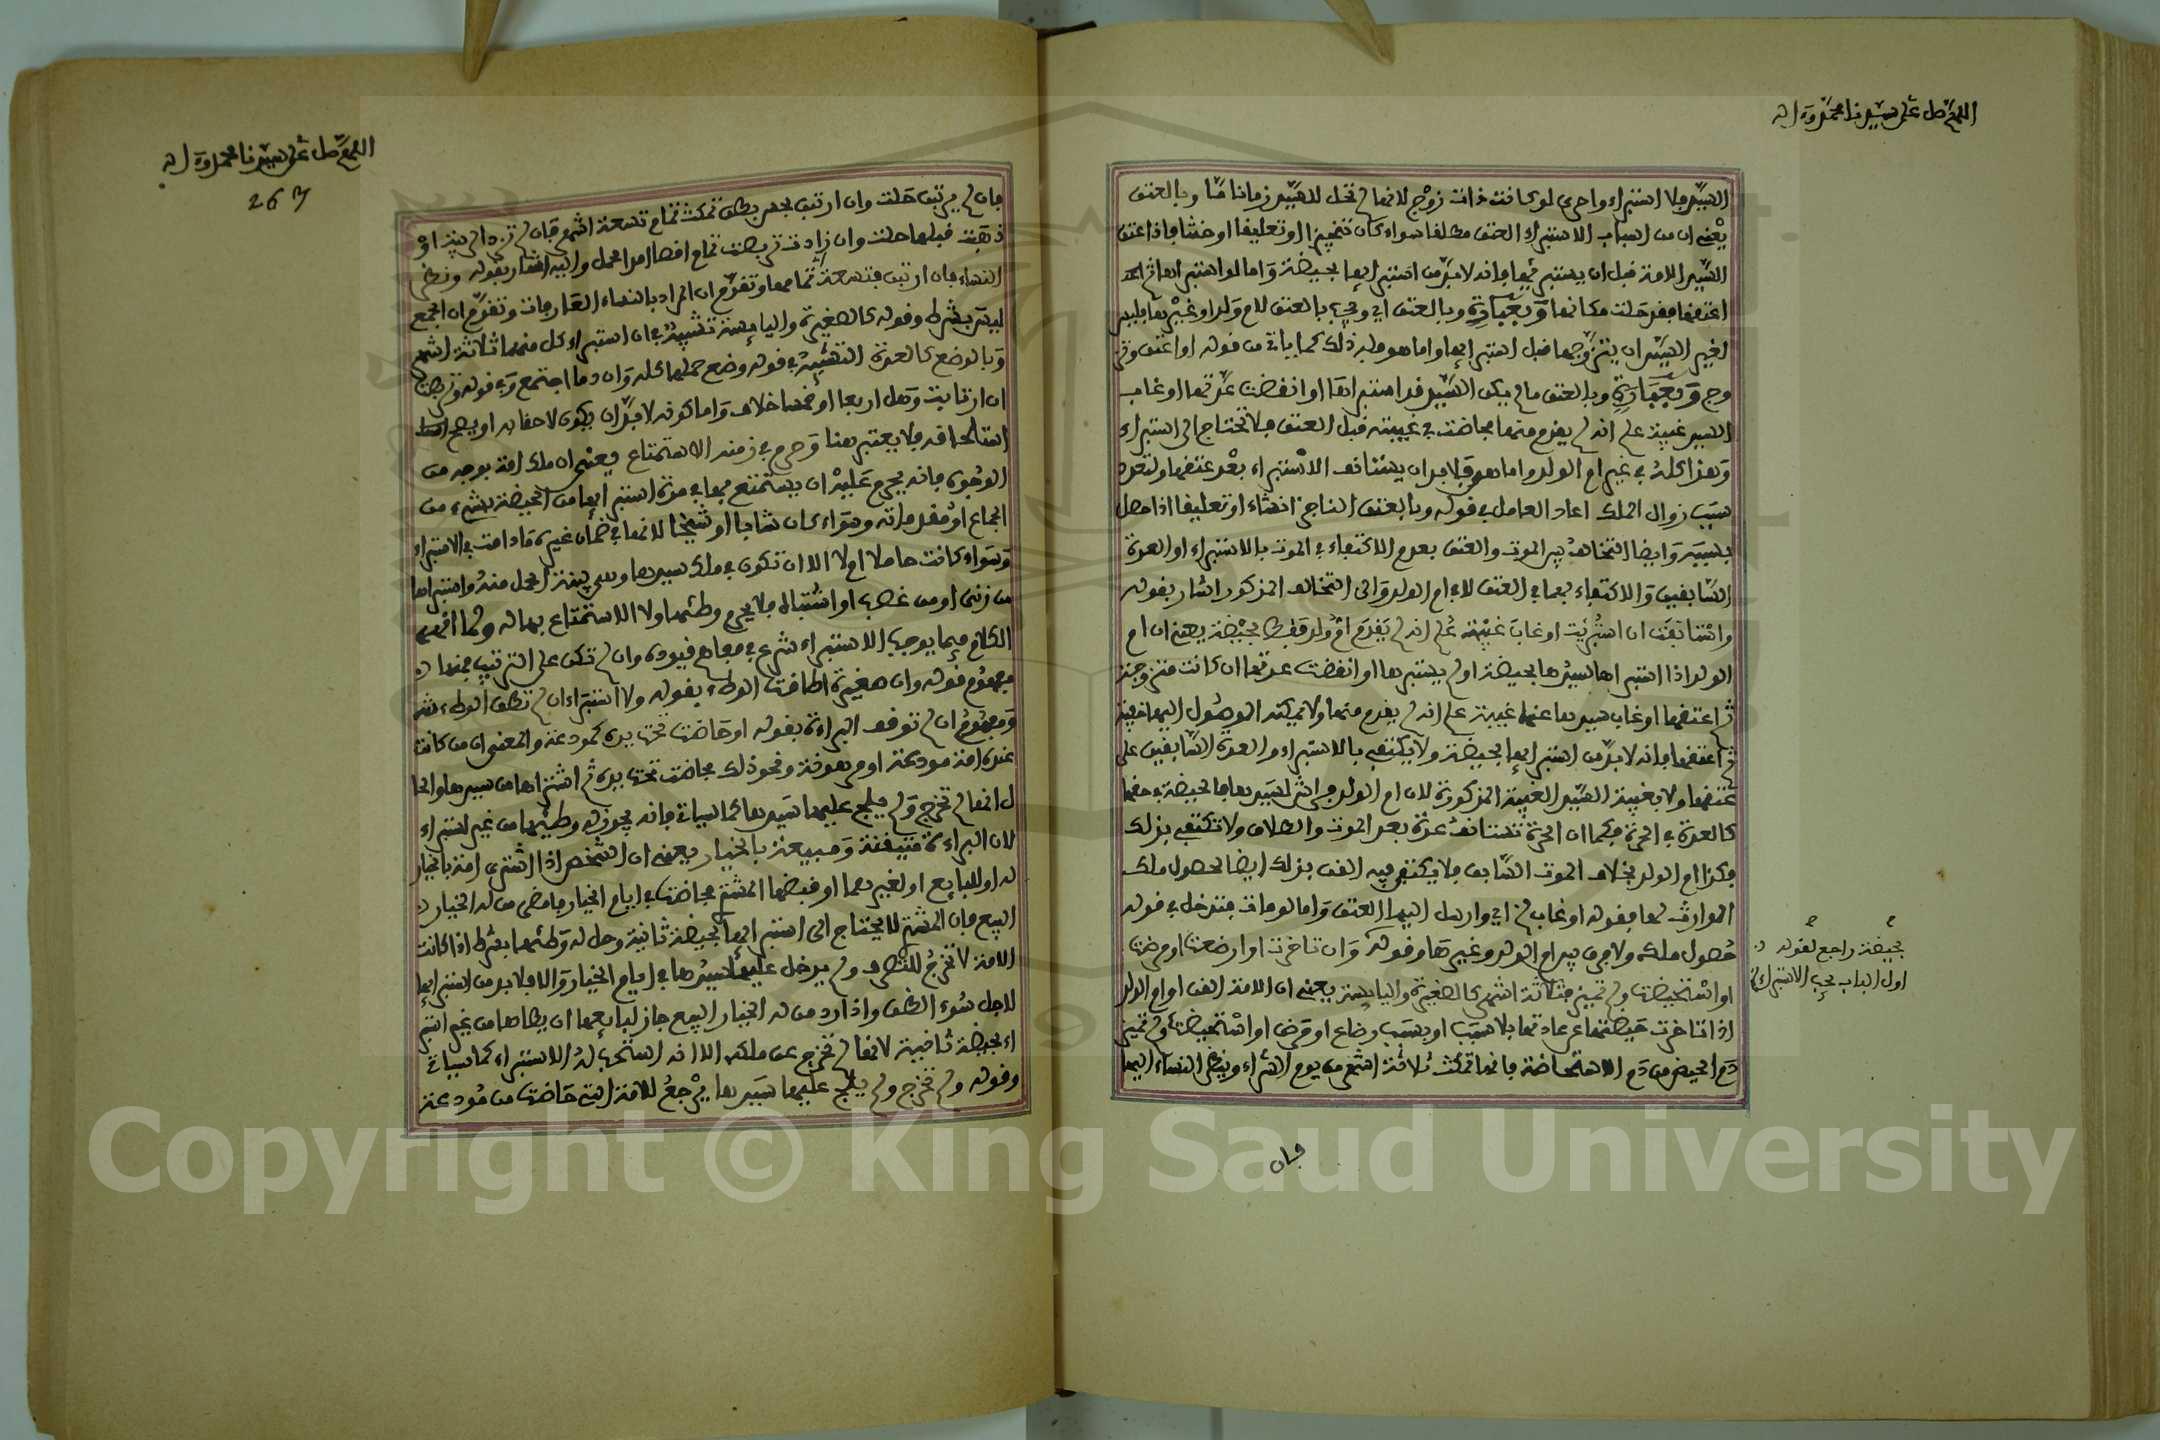 اللهم صل على سيدنا محمد وآله
السيد فلا استبراء واحرى لو كانت ذات زوج لانها لم تحل للسيد زمانا ما وبالعتق
يعني ان من اسباب الاستبراء العتق مطلقا سواء كان تنجيزا او تعليقا او حنثا فاذا اعتق
السيد الامة قبل ان يستبرئها فانه لا بد من استبرائها بحيضة واما لو استبراها ثم
اعتقها فقد حلت مكانها وبعبارة وبالعتق اي ويجب بالعتق لام ولد او غيرها فليس
لغير السيد ان يتزوجها قبل استبرائها واما هو فله ذلك كما ياتي من قوله او اعتق وتز
وج وبعبارة وبالعتق ما لم يكن السيد قد استبراها او انقضت عدتها او غاب
السيد غيبة علم انه لم يقدم منها فحاضت في غيبته قبل العتق فلا تحتاج الى استبراء
وهذا كله في غير ام الولد واما هي فلا بد ان يستانف الاستبراء بعد عتقها ولتعدد
سبب زوال الملك اعاد العامل في قوله وبالعتق الناجز انشاء او تعليقا اذا حصل
بسببه وايضا لتخالف الموت والعتق بعدم الاكتفاء في الموت بالاستبراء او العدة
السابقين والاكتفاء بهما في العتق الا في ام الولد والى التخالف المذكور اشار بقوله
واستانفت ان استبرئت او غاب غيبة علم انه لم يقدم ام ولد فقط بحيضة يعني ان ام
الولد اذا استبراها سيدها بحيضة او لم يستبرها او انقضت عدتها ان كانت متزوجة
ثم اعتقها او غاب سيدها عنها غيبة علم انه لم يقدم منها ولا يمكنه الوصول اليها خفية
ثم اعتقها فانه لا بد من استبرائها بحيضة ولا يكتفى بالاستبراء والعدة السابقين على
عتقها ولا بغيبة السيد الغيبة المذكورة لان ام الولد فراش لسيدها فالحيضة في حقها
كالعدة في الحرة فكما ان الحرة تستانف عدة بعد الموت والطلاق ولا تكتفي بذلك
فكذا ام الولد بخلاف الموت السابق فلا يكتفى فيه القن بذلك ايضا لحصول ملك
الوارث لها فقوله او غاب ثم اي وارسل اليها العتق واما لو مات فتدخل في قوله
حصول ملك ولا فرق بين ام الولد وغيرها وقوله وان تاخرت او ارضعت او مرضت
او استحيضت ولم تميز فثلاثة اشهر كالصغيرة واليائسة يعني ان الامة القن او ام الولد
اذا تاخرت حيضتها عن عادتها بلا سبب او بسبب رضاع او مرض او استحيضت ولم تميز
دم الحيض من دم الاستحاضة فانها تمكث ثلاثة اشهر من يوم الشراء وينظر النساء اليها
فان
بحيضة راجع لقوله
اول الباب يجب الاستبراء
اللهم صل على سيدنا محمد وآله
267
فان لم يرتبن حلت وان ارتبن بحس بطن تمكث تمام تسعة اشهر فان لم تزد الريبة او
ذهبت قبلها حلت وان زادت تربصت تمام اقصا امد الحمل واليه اشار بقوله ونظر
النساء فان ارتبن فتسعة تمامها وتقدم ان المراد بالنساء العارفات وتقدم ان الجمع
ليس بشرط وقوله كالصغيرة واليائسة تشبيه في ان استبراء كل منهما ثلاثة اشهر
وبالوضع كالعدة التشبيه في قوله وضع حملها كله وان دما اجتمع وفي قوله وتربصت
ان ارتابت وهل اربعا او خمسا خلاف واما كونه لا بد ان يكون لاحقا به او يصح
استلحاقه فلا يعتبر هنا وحرم في زمنه الاستمتاع يعني ان ملك امة بوجه من
الوجوه فانه يحرم عليه ان يستمتع بها في مدة استبرائها من الحيضة بشيء من
الجماع او مقدماته وسواء كان شابا او شيخا لانها في ضمان غيره ما دامت في الاستبراء
وسواء كانت حاملا ام لا الا ان تكون في ملك سيدها وهي بينة الحمل منه واستبراها
من زنى او من غصب او اشتباه فلا يحرم وطئها ولا الاستمتاع بها له ولما اقدم
الكلام فيما يوجب الاستبراء شرع في مفاهيم قيوده وان لم تكن على الترتيب فمنها
مفهوم قوله وان صغيرة اطاقت الوطء بقوله ولا استبراء ان لم تطق الوطء شر
ومفهوم ان لم توقن البراءة بقوله او حاضت تحت يده كمودعة والمعنى ان من كانت
عنده امة مودعة او مرهونة ونحو ذلك فحاضت تحت يده ثم اشتراها من سيدها والحا
ل انها لم تخرج ولم يلج عليها سيدها كما سياتي فانه يجوز له وطئها من غير استبراء
لان البراءة متيقنة ومبيعة بالخيار يعني ان الشخص اذا اشترى امة بالخيار
له او للبايع او لغيرهما او قبضها المشتر فحاضت في ايام الخيار فامضى من له الخيار
البيع فان المشتر لا يحتاج الى استبرائها بحيضة ثانية وحل له وطئها بشرط اذا كانت
الامة لا تخرج للتصرف ولم يدخل عليها سيدها في ايام الخيار والا فلا بد من استبرائها
لاجل سوء الظن واذا رد من له الخيار البيع جاز لبايعها ان يطاها من غير استبر
اء بحيضة ثانية لانها لم تخرج عن ملكه الا انه استحب له الاستبراء كما سياتي
وقوله ولم تخرج ولم يلج عليها سيدها يرجع للامة التي حاضت من مودعة
Copyright © King Saud University